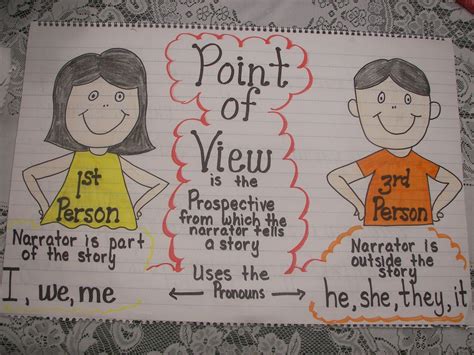 Point
of
View
is the
Prospective
from which the
narrator tells
a story
1st
Person
Narrator is part
of the story
I, we, me
Uses the
Pronouns
3rd
Person
Narrator is
outside the
story
he, she, they, it